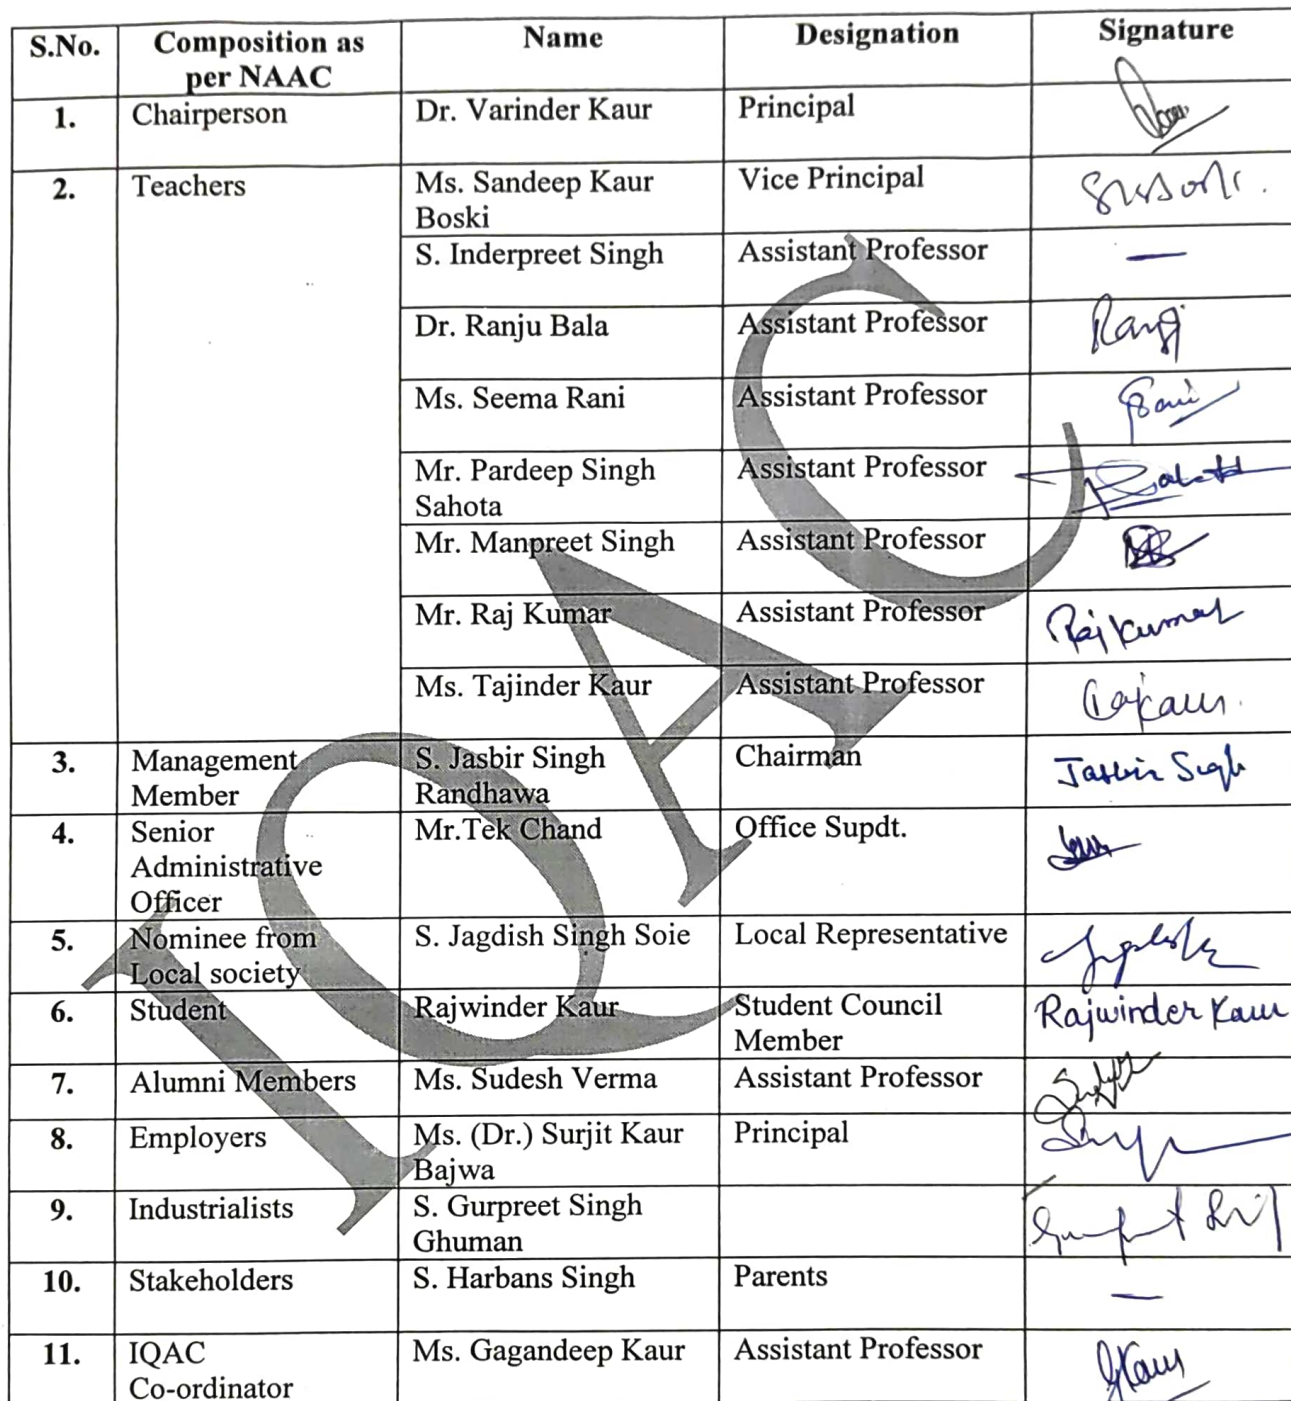 S.No. Composition as per NAAC Name Designation Signature
1. Chairperson Dr. Varinder Kaur Principal
2. Teachers Ms. Sandeep Kaur Boski Vice Principal
S. Inderpreet Singh Assistant Professor —
Dr. Ranju Bala Assistant Professor
Ms. Seema Rani Assistant Professor
Mr. Pardeep Singh Sahota Assistant Professor
Mr. Manpreet Singh Assistant Professor
Mr. Raj Kumar Assistant Professor Raj Kumar
Ms. Tajinder Kaur Assistant Professor
3. Management Member S. Jasbir Singh Randhawa Chairman Jasbir Singh
4. Senior Administrative Officer Mr.Tek Chand Office Supdt.
5. Nominee from Local society S. Jagdish Singh Soie Local Representative
6. Student Rajwinder Kaur Student Council Member Rajwinder Kaur
7. Alumni Members Ms. Sudesh Verma Assistant Professor
8. Employers Ms. (Dr.) Surjit Kaur Bajwa Principal
9. Industrialists S. Gurpreet Singh Ghuman
10. Stakeholders S. Harbans Singh Parents —
11. IQAC Co-ordinator Ms. Gagandeep Kaur Assistant Professor
IQAC